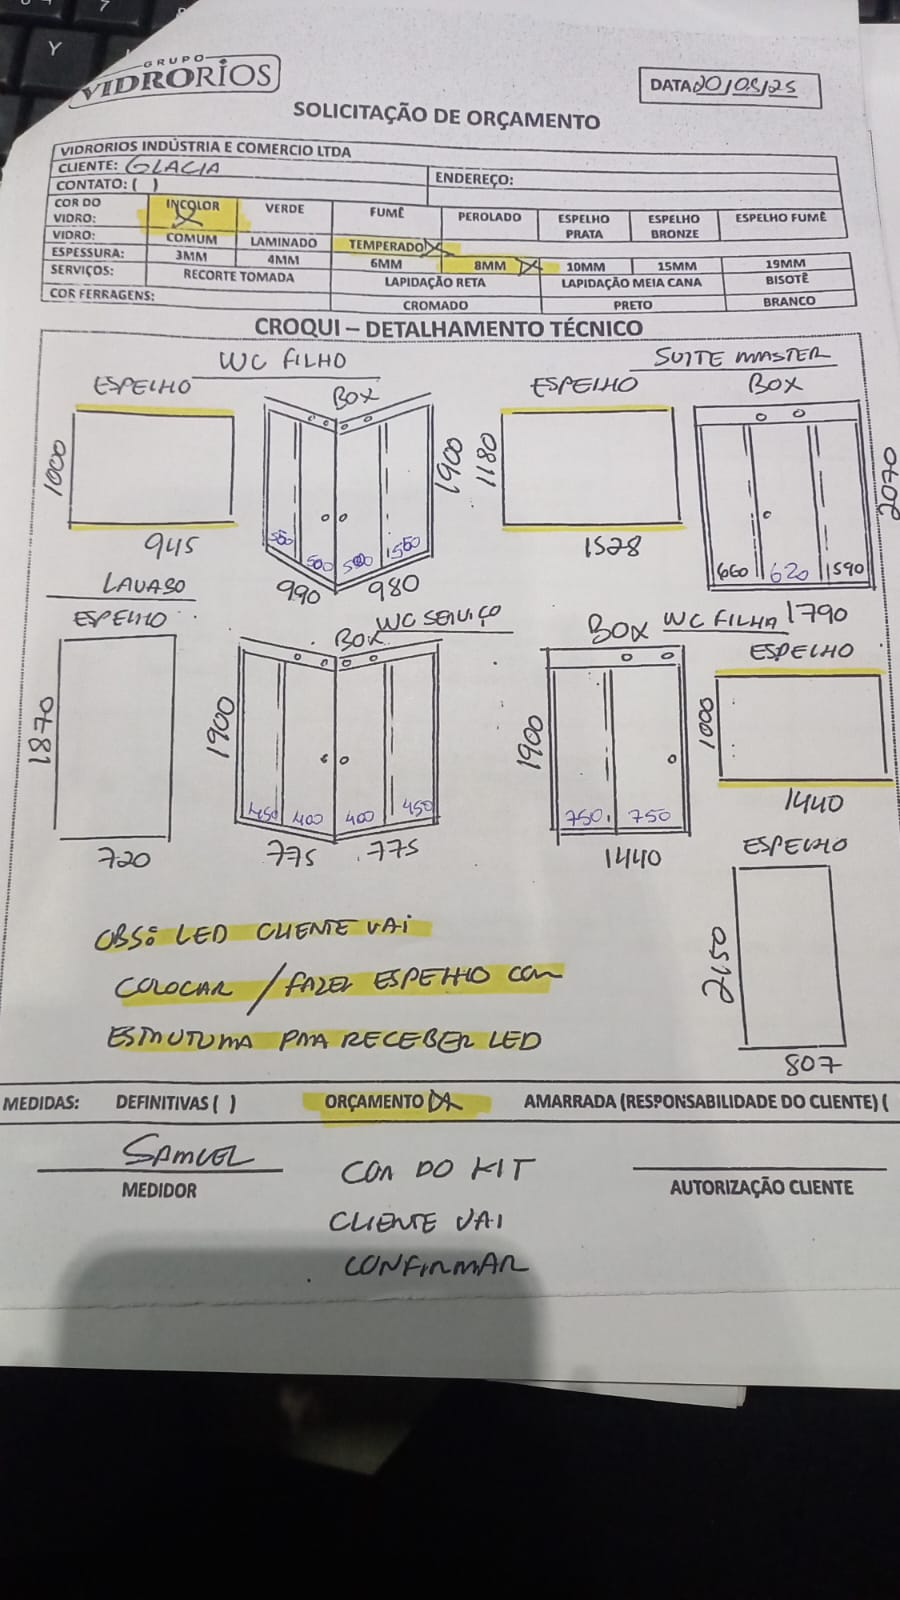 Y
GRUPO
VIDRORIOS
DATA 20/05/25
SOLICITAÇÃO DE ORÇAMENTO
VIDRORIOS INDÚSTRIA E COMERCIO LTDA
CLIENTE: GLACIA
CONTATO: ( )
ENDEREÇO:
COR DO VIDRO: INCOLOR X VERDE FUMÊ PEROLADO ESPELHO PRATA ESPELHO BRONZE ESPELHO FUMÊ
VIDRO: COMUM LAMINADO TEMPERADO X
ESPESSURA: 3MM 4MM 6MM 8MM X 10MM 15MM 19MM
SERVIÇOS: RECORTE TOMADA LAPIDAÇÃO RETA LAPIDAÇÃO MEIA CANA BISOTÊ
COR FERRAGENS: CROMADO PRETO BRANCO
CROQUI – DETALHAMENTO TÉCNICO
WC FILHO
ESPELHO
1000
945
BOX
1900
500 500
990 980
SUITE MASTER
ESPELHO
1180
1528
BOX
2070
660 620 590
1790
LAVABO
ESPELHO
1870
720
WC SERVIÇO
BOX
1900
450 400 400 450
775 775
WC FILHA
BOX
1900
750 750
1440
ESPELHO
1000
1440
ESPELHO
2150
807
OBS: LED CLIENTE VAI
COLOCAR / FAZER ESPELHO COM
ESTRUTURA PRA RECEBER LED
MEDIDAS: DEFINITIVAS ( ) ORÇAMENTO (X) AMARRADA (RESPONSABILIDADE DO CLIENTE) (
SAMUEL
MEDIDOR
COR DO KIT
CLIENTE VAI
CONFIRMAR
AUTORIZAÇÃO CLIENTE